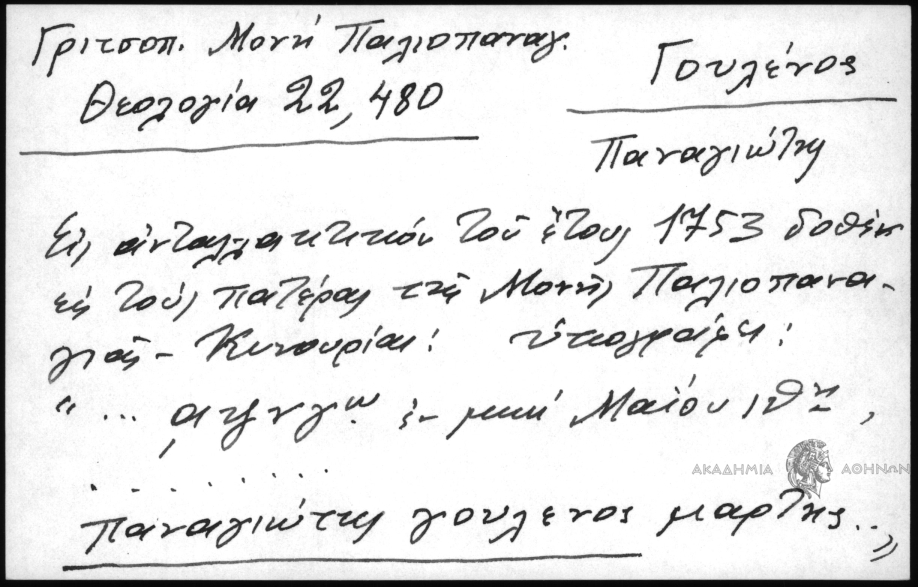 Γριτσοπ. Μονή Παλιοπαναγ.
Θεολογία 22, 480
Γουλένος
Παναγιώτης
Εἰς ἀνταλλακτικόν τοῦ ἔτους 1753 δοθέν
εἰς τούς πατέρας τῆς Μονῆς Παλιοπανα-
γιᾶς - Κυνουρίας: ὑπογραφή:
"... ͵αψνγῳ ἐν μηνί Μαΐου ιθῃ,
. . . . . . . . .
ΑΚΑΔΗΜΙΑ ΑΘΗΝΩΝ
παναγιώτης γουλενος μαρτης..."